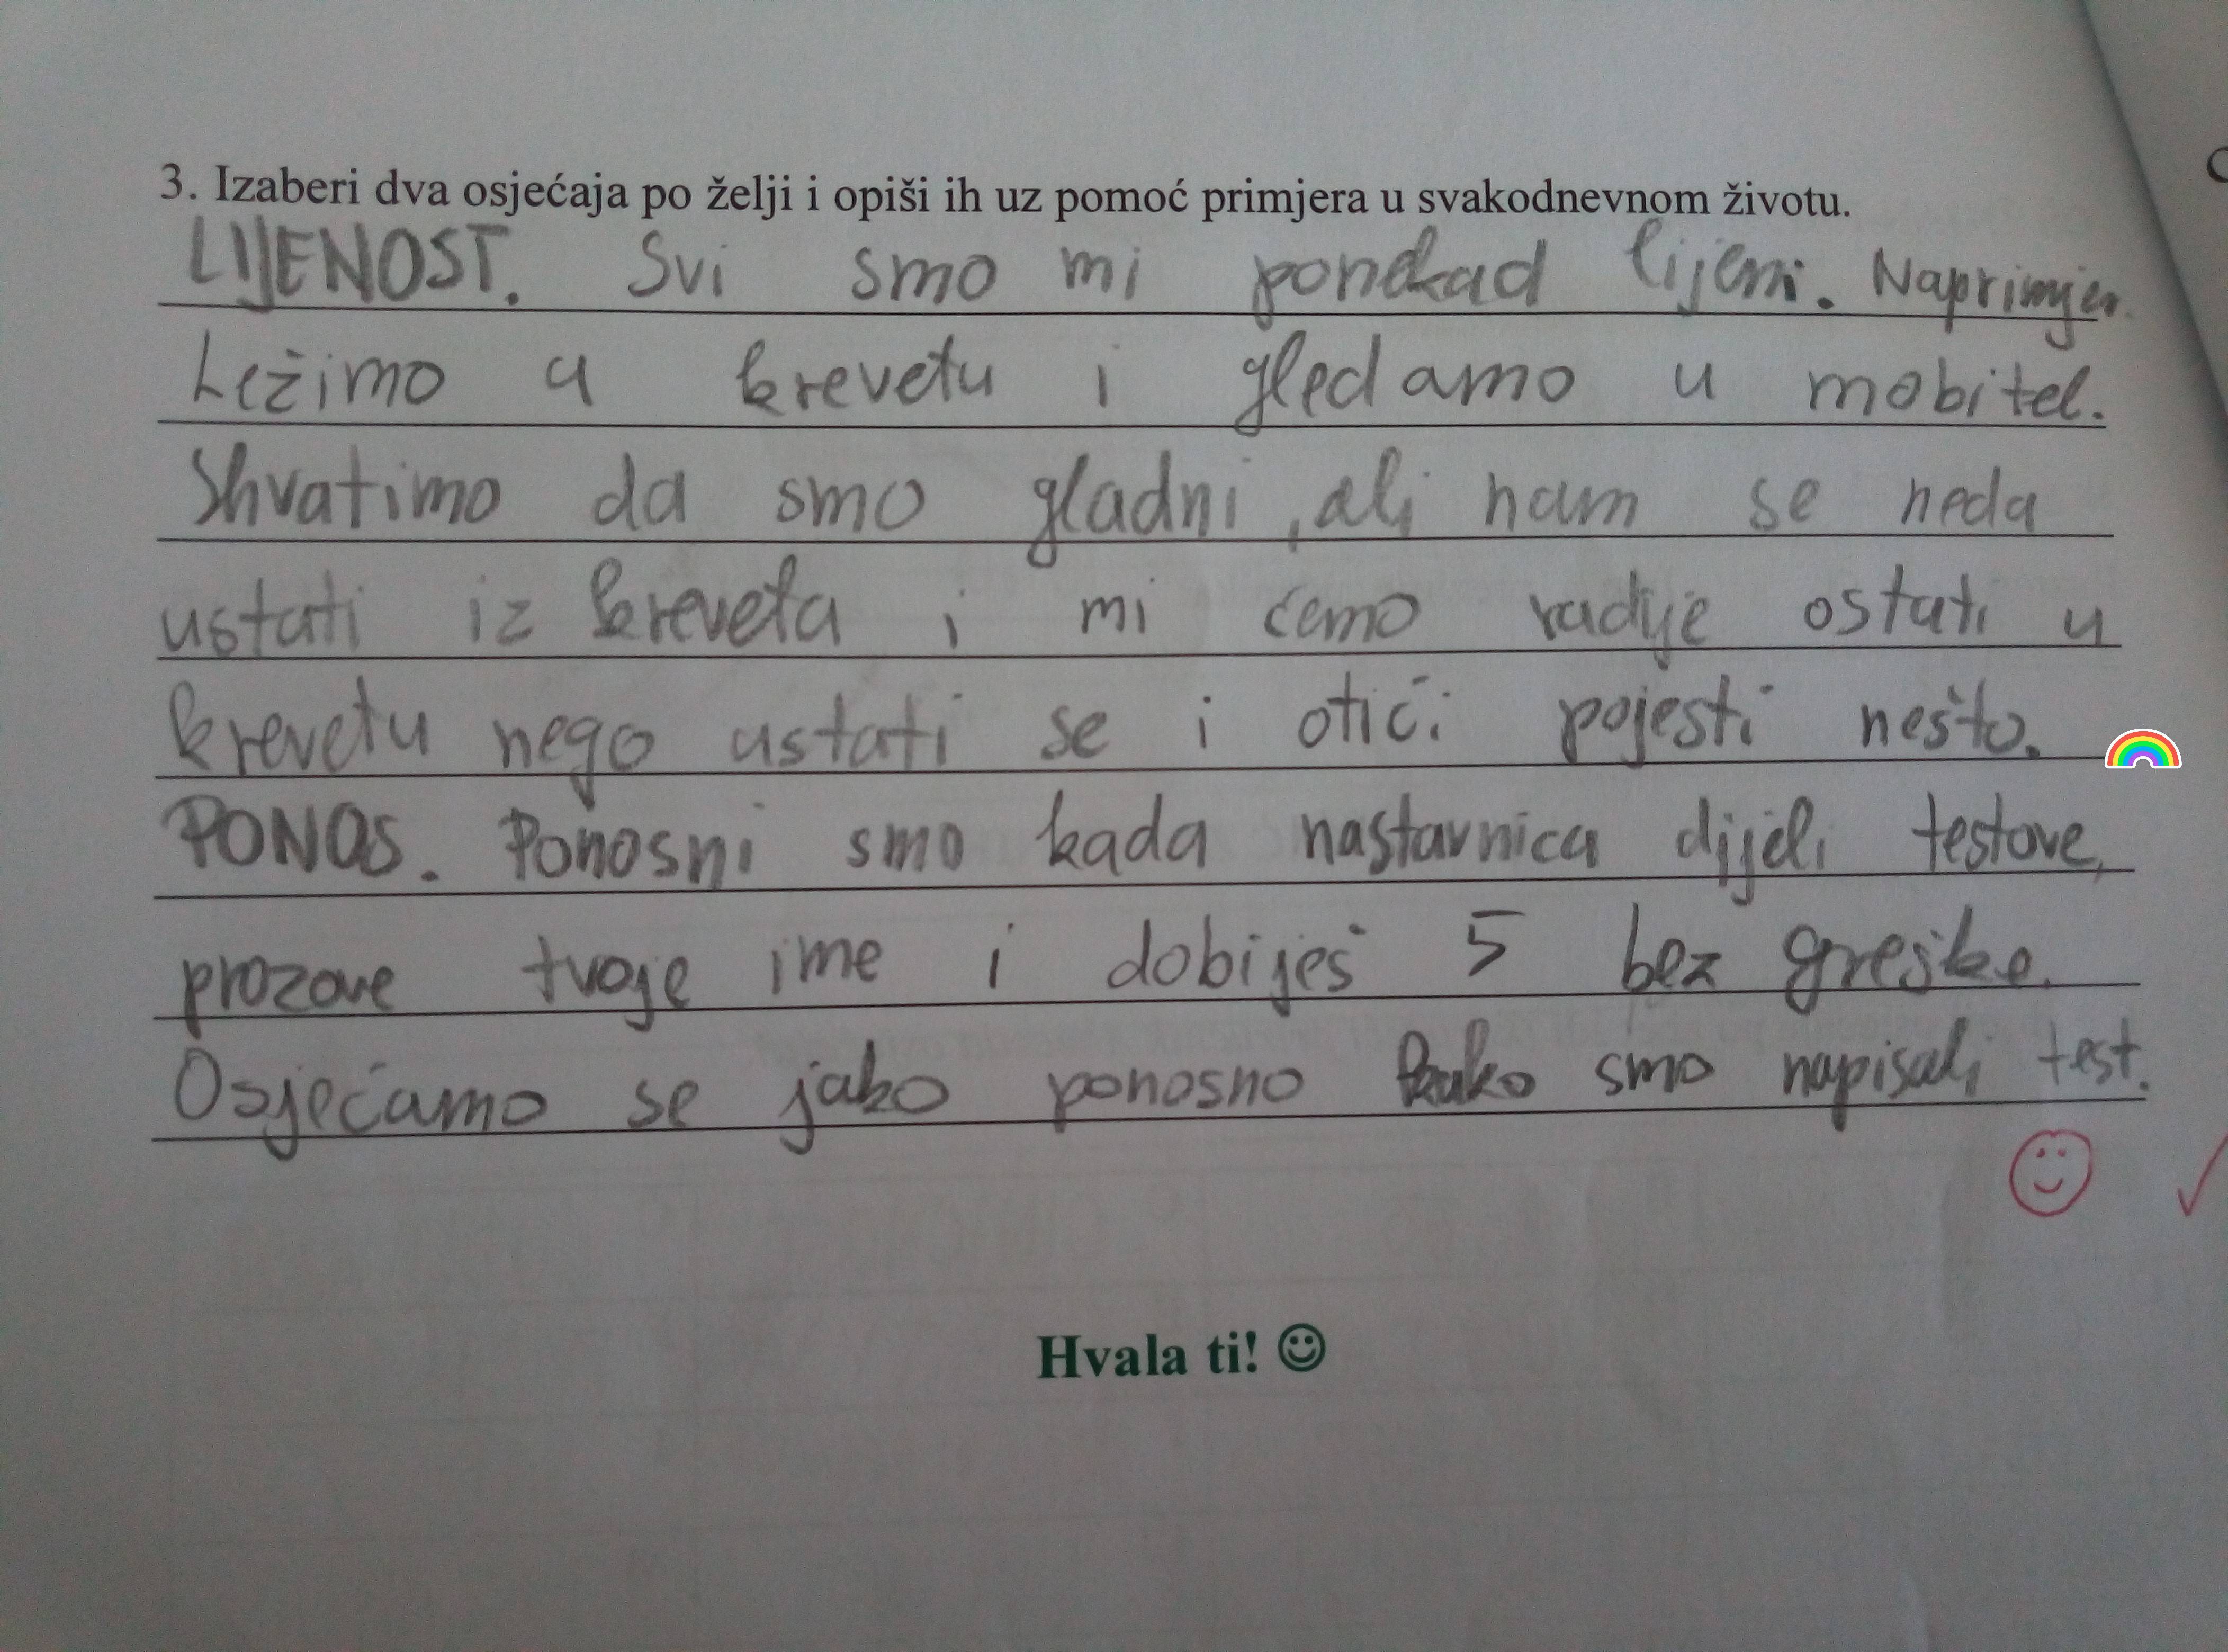 3. Izaberi dva osjećaja po želji i opiši ih uz pomoć primjera u svakodnevnom životu.
LIJENOST. Svi smo mi ponekad lijeni. Naprimjer
Ležimo u krevetu i gledamo u mobitel.
Shvatimo da smo gladni, ali nam se neda
ustati iz kreveta i mi ćemo radije ostati u
krevetu nego ustati se i otići pojesti nešto.
PONOS. Ponosni smo kada nastavnica dijeli testove,
prozove tvoje ime i dobiješ 5 bez greške.
Osjećamo se jako ponosno kako smo napisali test.
Hvala ti! ☺